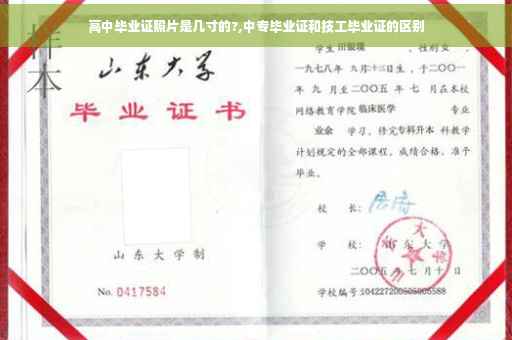 高中毕业证照片是几寸的?,中专毕业证和技工毕业证的区别
样本
山东大学
毕业证书
山东大学制
No. 0417584
学生 性别女,
一九七八年九月十三日生,于二〇〇一
年 九 月至二〇〇五 年 七 月在本校
网络教育学院 临床医学 专业
业余 学习,修完专科升本科教学
计划规定的全部课程,成绩合格,准予
毕业。
校 长:
学 校: 山东大学
二〇〇五年七月十日
学校编号: